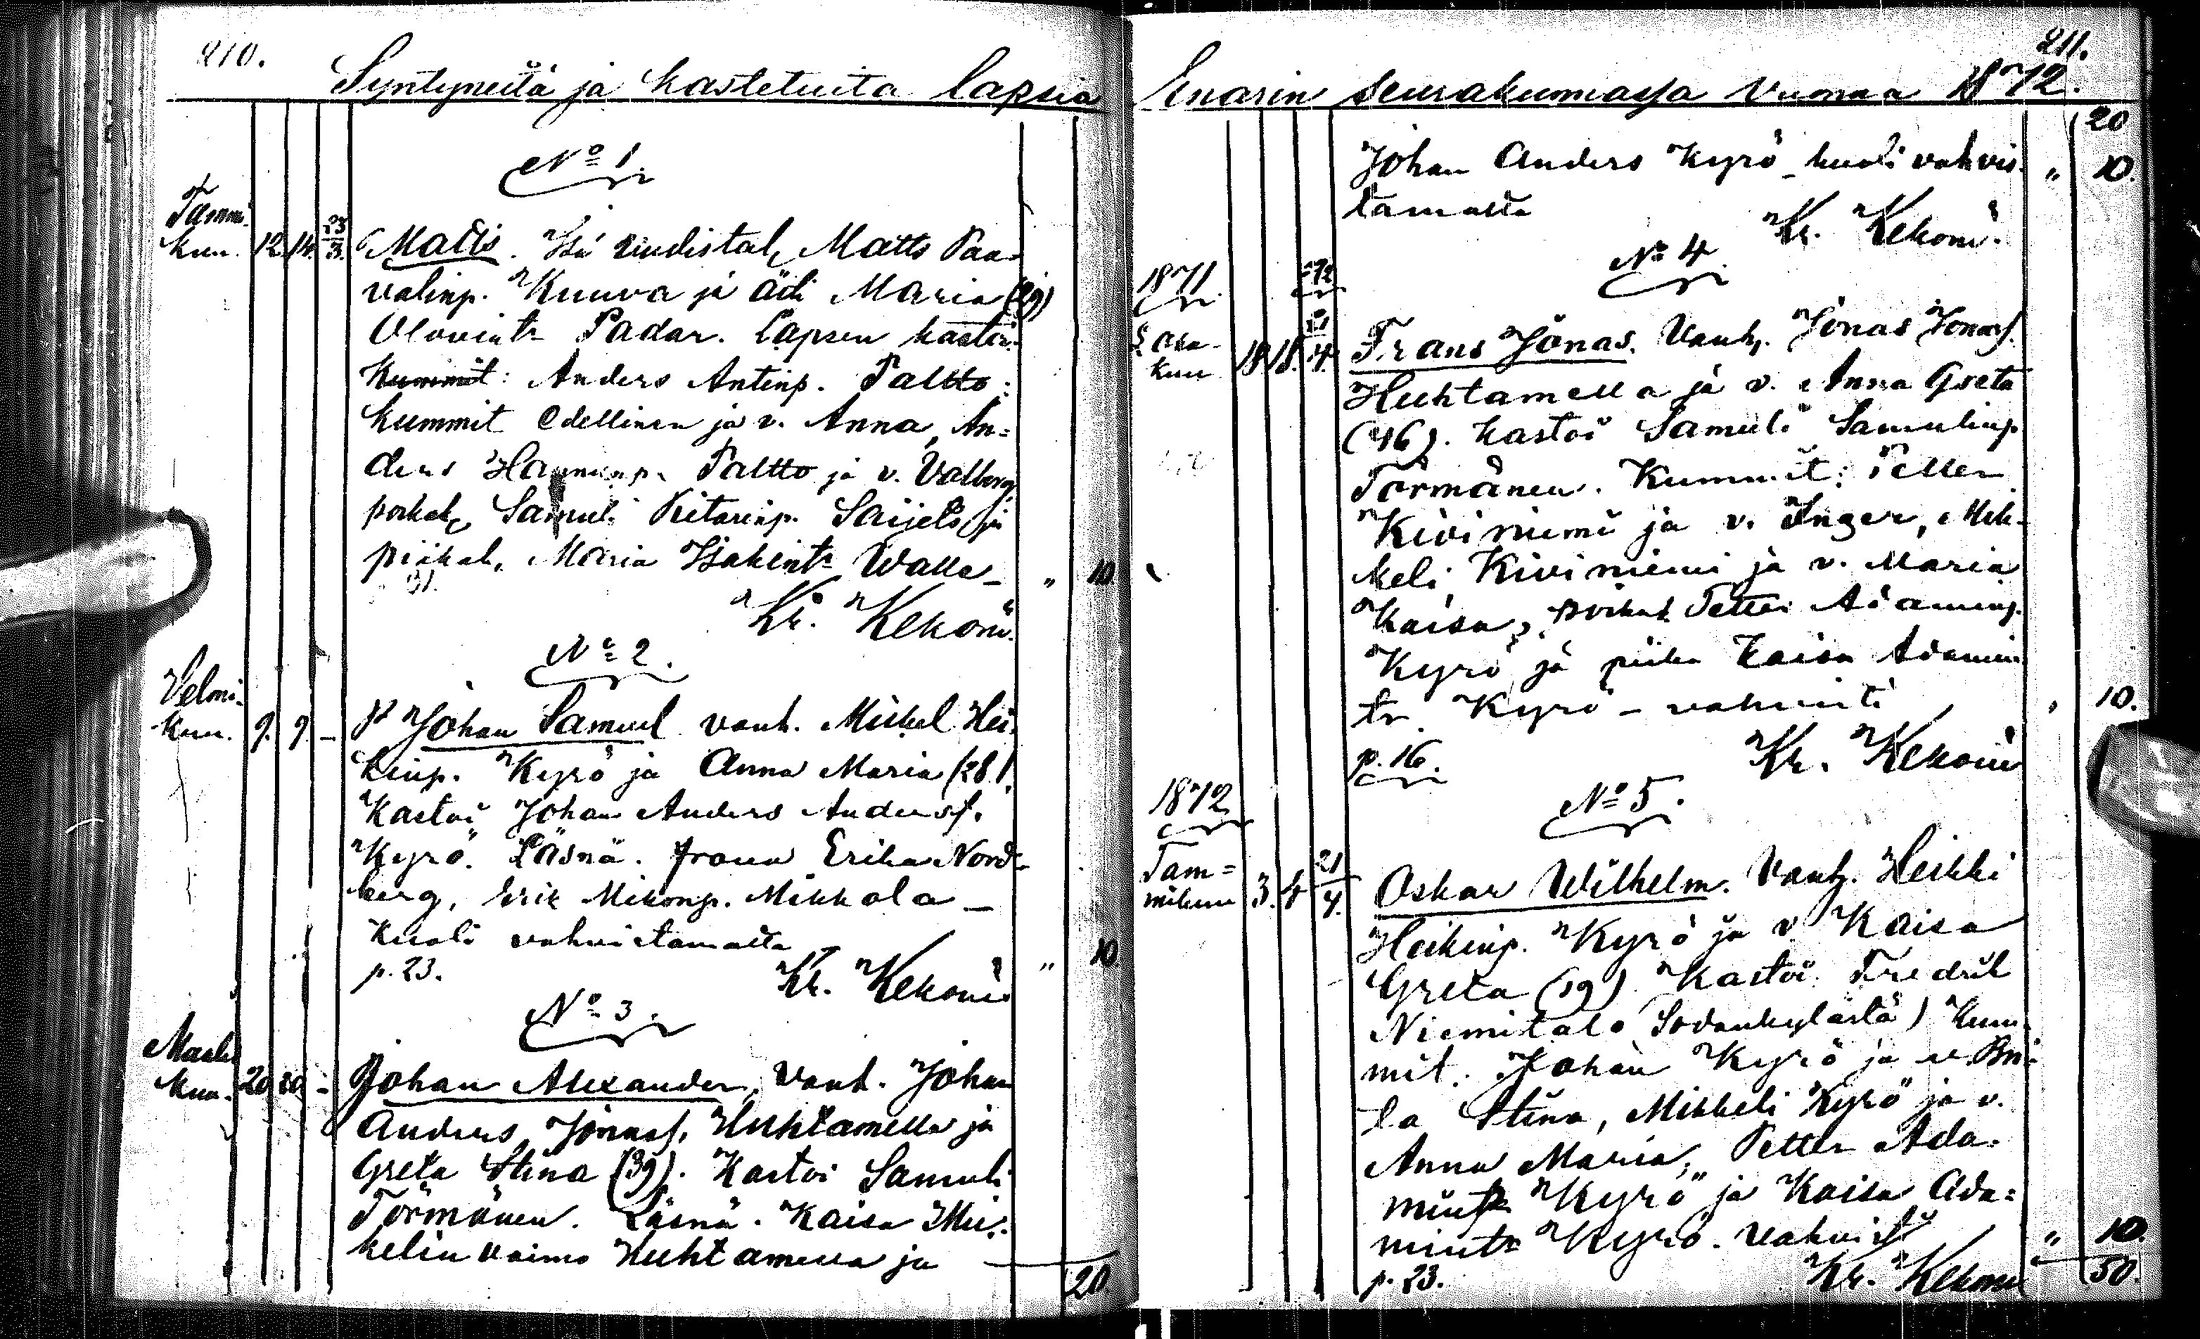 210.
Syntyneitä ja kastetuita lapsia
No 1.
Tammi-
kuu. 12. 14. 23/3. Matts. Isä uudistal. Matts Paa-
valinp. Kuuva ja äiti Maria (29)
Olovintr Padar. Lapsen kastoi
Kummit: Anders Antinp. Paltto:
kummit edellinen ja v. Anna, An=
ders Hannunp. Paltto ja v. Valborg,
poikal. Samuli Pitarinp. Saijets ja
piikal. Maria Isakintr Walle_ " 10
Kr. Kekoni.
No 2.
Helmi-
kuu. 9. 9. _ Johan Samuel vanh. Mickel Hei-
kinp. Kyrö ja Anna Maria (28).
Kastoi Johan Anders Andersf.
Kyrö. Läsnä. frouva Erika Nord-
berg, Erik Mikonp. Mikkola _
Kuoli vahvistamatta " 10
p. 23. Kr. Kekoni
No 3.
Maalis
kuu. 20 20 - Johan Alexander, vanh. Johan
Anders Jonasf. Huhtamella ja
Greta Stina (39). Kastoi Samuli
Törmänen. Läsnä. Kaisa Mi-
kelin vaimo Huhtamella ja
20.
211.
Enarin seurakunnassa Vuonna 1872.
20
Johan Anders Kyrö _ kuoli vahvis- " 10.
tamatta
Kr. Kekoni.
No 4.
1871 72
Loka-
kuu 18 18. 21/4. Frans Jonas. Vanh. Jonas Jonasf.
Huhtamella ja v. Anna Greta
(46). Kastoi Samuli Samulinp
Törmänen. Kummit: Petter
Kiviniemi ja v. Inger, Mik-
keli Kiviniemi ja v. Maria
Kaisa, poikal. Petter Adaminp.
Kyrö ja piika Kaisa Adamin
tr Kyrö - vahvisti " 10.
p. 16. Kr. Kekoni
No 5.
1872
Tam=
mikuu 3. 4 21/4. Oskar Wilhelm. Vanh. Heikki
Heikinp. Kyrö ja v Kaisa
Greta (19) Kastoi Fredrik
Niemitalo Sodankylästä) Kum-
mit. Johan Kyrö ja v Bri-
ta Stina, Mikkeli Kyrö ja v.
Anna Maria, Petter Ada-
minp Kyrö ja Kaisa Ada=
mintr Kyrö. vahvist " 10.
p. 23. Kr. Kekoni 50.